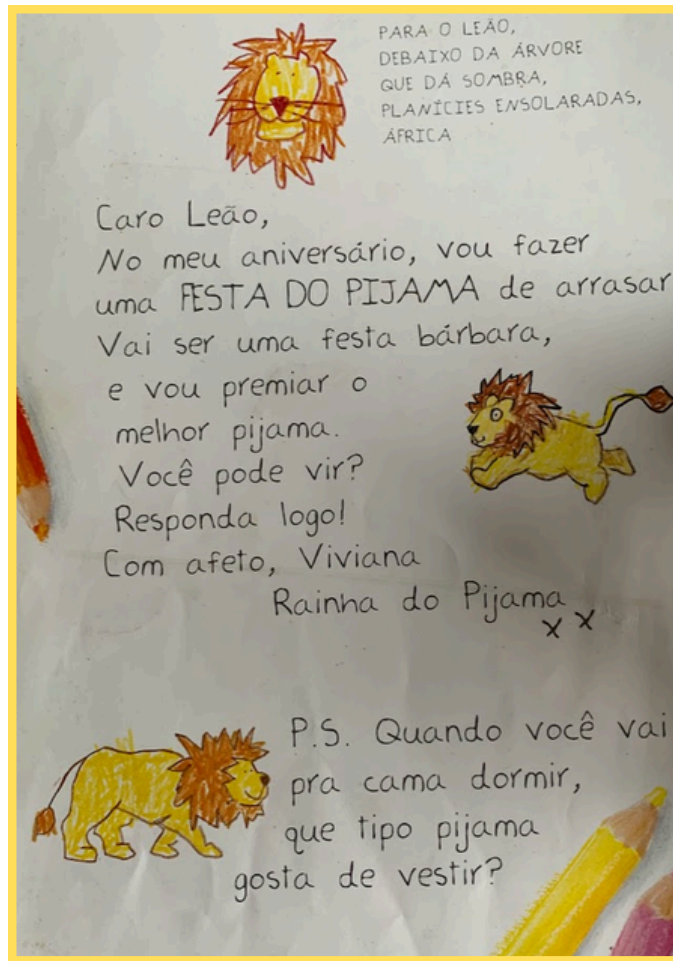 PARA O LEÃO,
DEBAIXO DA ÁRVORE
QUE DÁ SOMBRA,
PLANÍCIES ENSOLARADAS,
ÁFRICA
Caro Leão,
No meu aniversário, vou fazer
uma FESTA DO PIJAMA de arrasar
Vai ser uma festa bárbara,
e vou premiar o
melhor pijama.
Você pode vir?
Responda logo!
Com afeto, Viviana
Rainha do Pijama
x x
P.S. Quando você vai
pra cama dormir,
que tipo pijama
gosta de vestir?